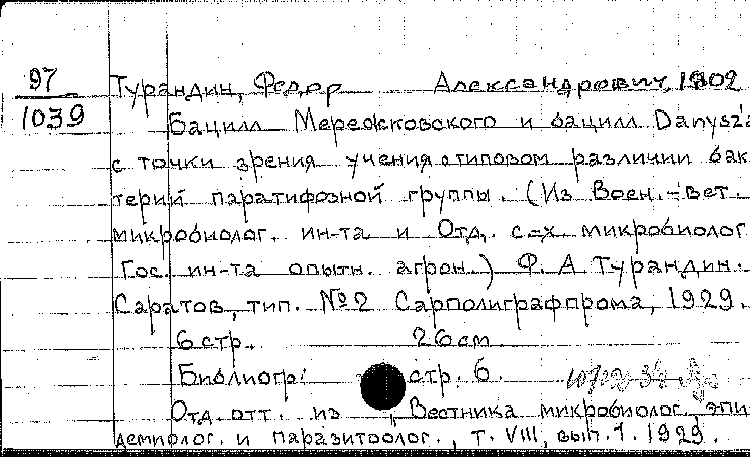 97
1039
Турандин, Федор Александрович, 1902
Бацилл Мережковского и бацилл Danysz'a
с точки зрения учения о типовом различии бак
терий паратифозной группы. (Из Воен.-вет.
микробиолог. ин-та и Отд. с-х. микробиолог
Гос. ин-та опытн. агрон.) Ф. А. Турандин.
Саратов, тип. №2 Сарполиграфпрома, 1929.
6 стр. 26 см
Библиогр: стр. 6.
Отд. отт. из „Вестника микробиолог, эпи
демиолог. и паразитоолог., т. VIII, вып. 1. 1929.